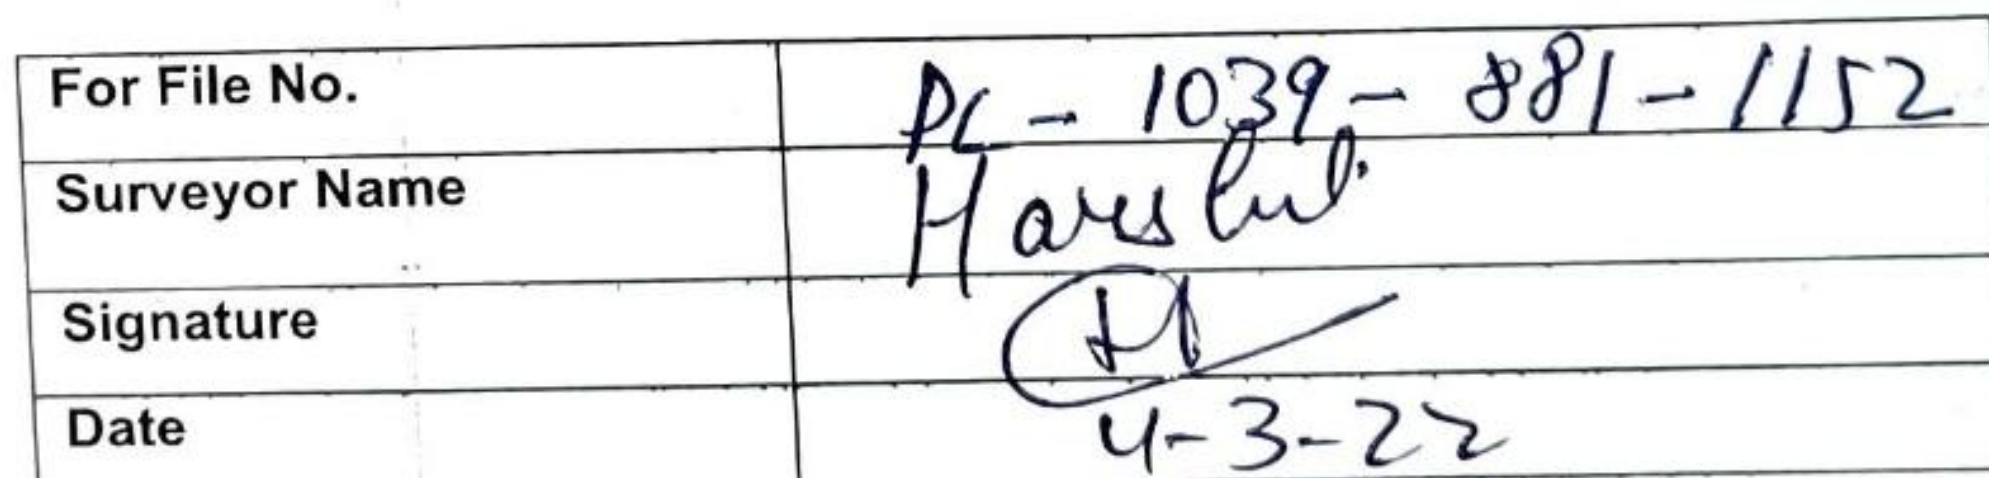 For File No. PL - 1039 - 881 - 1152
Surveyor Name Harshit
Signature
Date 4-3-22